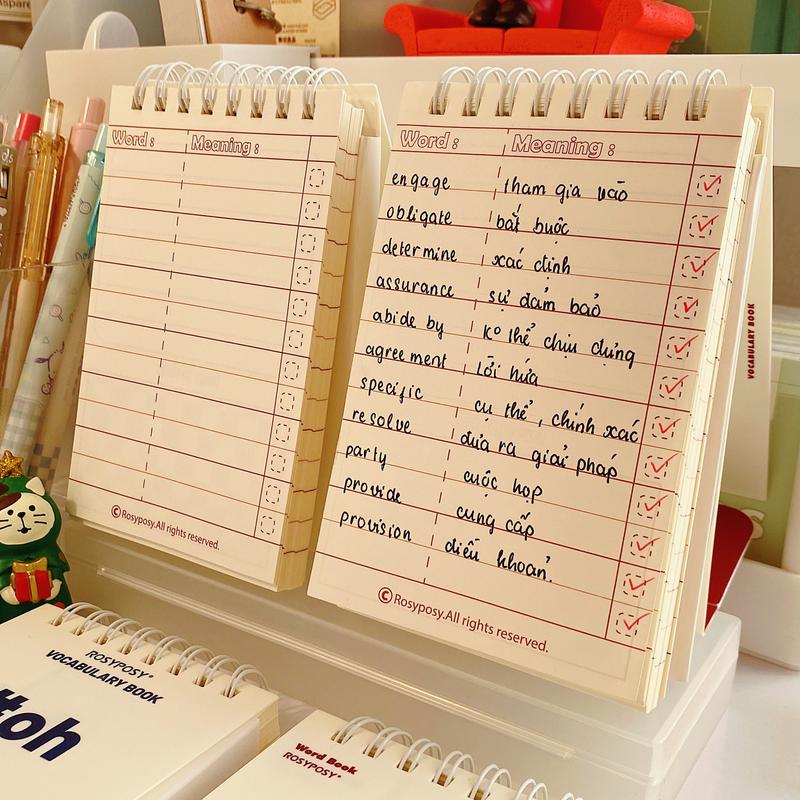 Word : Meaning :
©Rosyposy.All rights reserved.
Word : Meaning :
engage tham gia vào
obligate bắt buộc
determine xác định
assurance sự đảm bảo
abide by ko thể chịu đựng
agreement lời hứa
specific cụ thể , chính xác
resolve đưa ra giải pháp
party cuộc họp
provide cung cấp
provision điều khoản.
©Rosyposy.All rights reserved.
VOCABULARY BOOK
ROSYPOSY
VOCABULARY BOOK
Word Book
ROSYPOSY